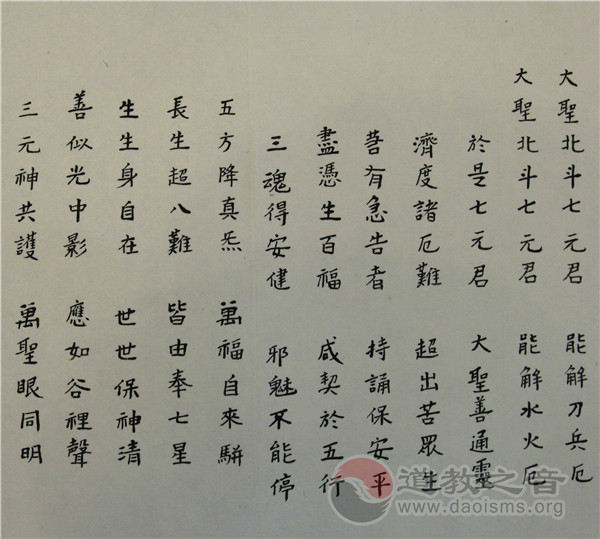 大聖北斗七元君 能解刀兵厄
大聖北斗七元君 能解水火厄
於是七元君 大聖善通靈
濟度諸厄難 超出苦眾生
若有急告者 持誦保安平
盡憑生百福 咸契於五行
三魂得安健 邪魅不能停
五方降真炁 萬福自來駢
長生超八難 皆由奉七星
生生身自在 世世保神清
善似光中影 應如谷裡聲
三元神共護 萬聖眼同明
道教之音
www.daoisms.org